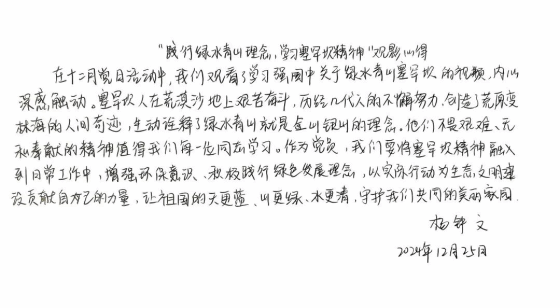 “践行绿水青山理念，学习塞罕坝精神”观影心得
在十二月党日活动中，我们观看了学习强国中关于绿水青山塞罕坝的视频，内心
深感触动。塞罕坝人在荒漠沙地上艰苦奋斗，历经几代人的不懈努力，创造了荒原变
林海的人间奇迹，生动诠释了绿水青山就是金山银山的理念。他们不畏艰难、无
私奉献的精神值得我们每一位同志学习。作为党员，我们要将塞罕坝精神融入
到日常工作中，增强环保意识、积极践行绿色发展理念，以实际行动为生态文明建
设贡献自己的力量，让祖国的天更蓝、山更绿、水更清，守护我们共同的美丽家园。
杨钟文
2024年12月25日